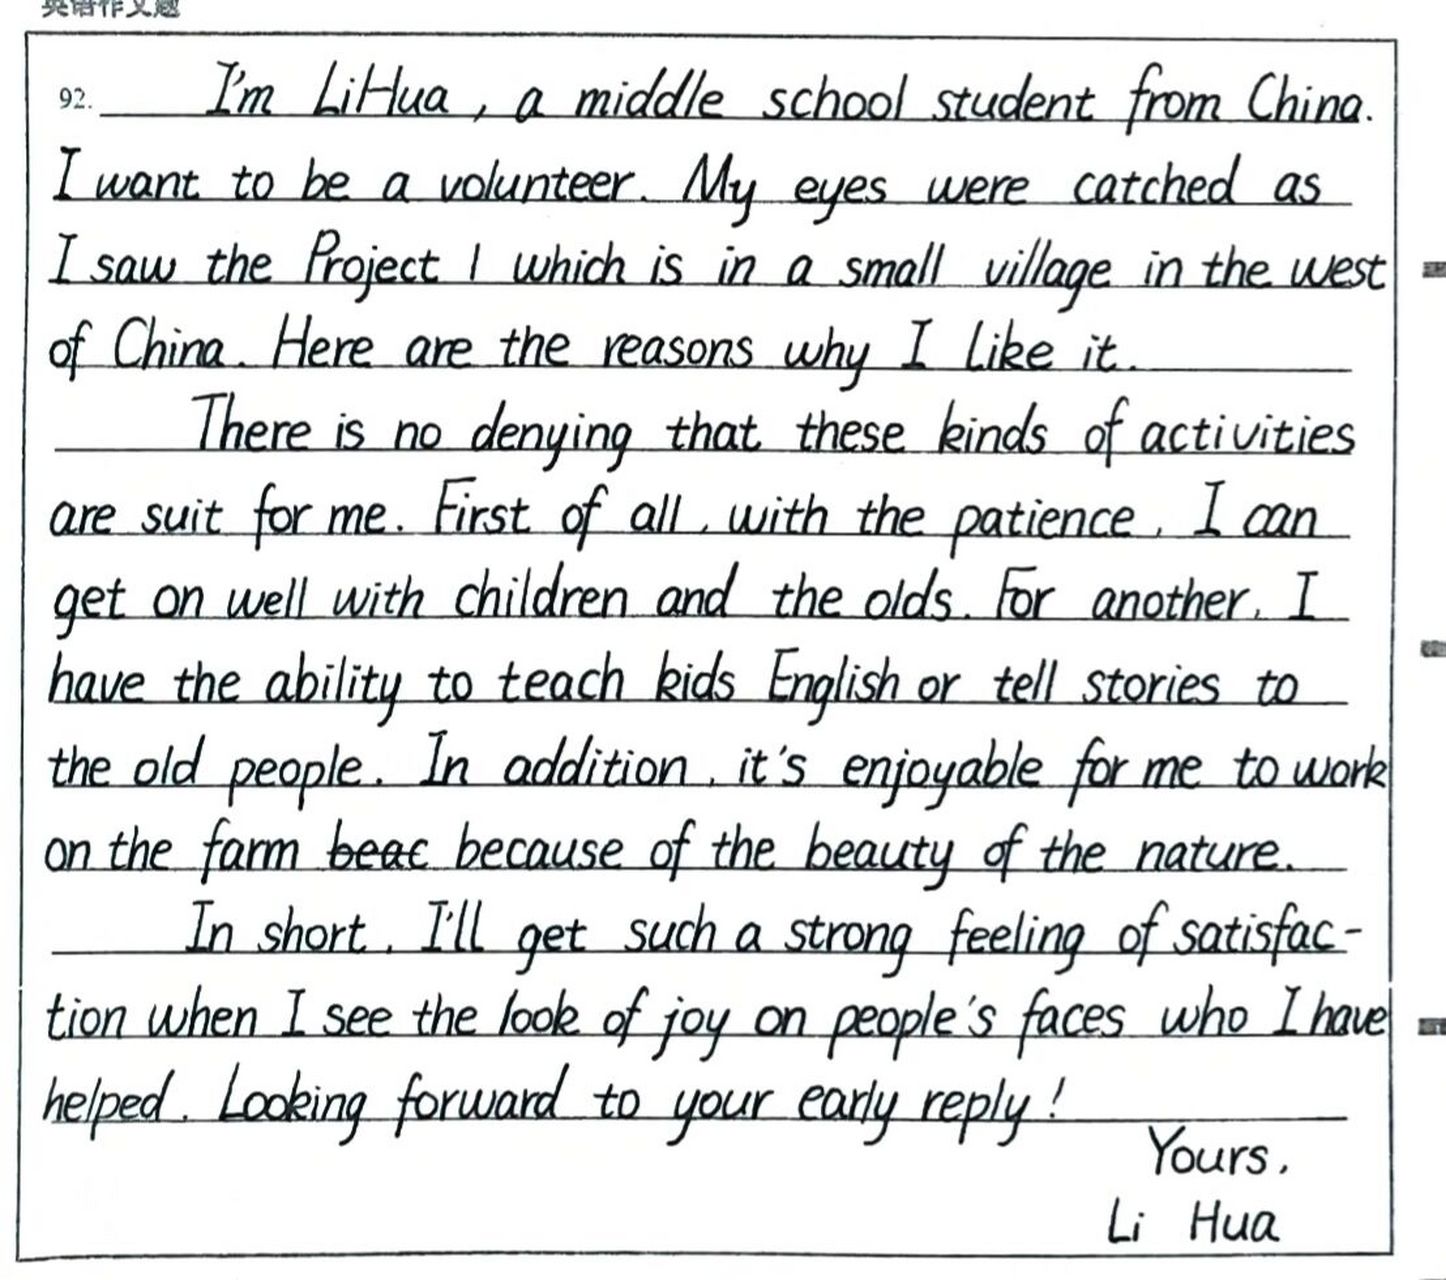 英语作文题
92. I'm LiHua, a middle school student from China.
I want to be a volunteer. My eyes were catched as
I saw the Project 1 which is in a small village in the west
of China. Here are the reasons why I like it.
There is no denying that these kinds of activities
are suit for me. First of all, with the patience, I can
get on well with children and the olds. For another, I
have the ability to teach kids English or tell stories to
the old people. In addition, it's enjoyable for me to work
on the farm beac because of the beauty of the nature.
In short, I'll get such a strong feeling of satisfac-
tion when I see the look of joy on people's faces who I have
helped. Looking forward to your early reply!
Yours,
Li Hua